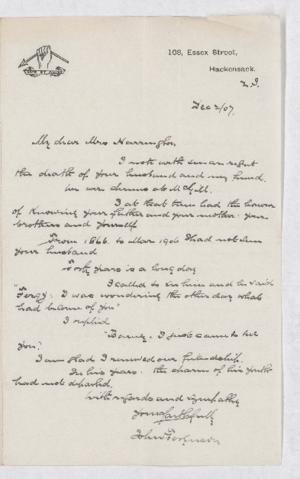 108, Essex Street,
Hackensack.
N. J.
Dec 2/07.
My dear Mrs Harrington,
I note with sincere regret
the death of your husband and my friend.
We were chums at McGill.
I at that time had the honor
of knowing your father and your mother: your
brothers and yourself.
From 1866 to Mar 1906 I had not seen
your husband
Forty years is a long day
I called to see him and he said
"Fergy: I was wondering the other day what
had become of you"
I replied
I just came to see
you."
I am glad I renewed our friendship.
In his years the charm of his youth
had not departed.
With regards and sympathy
Yours faithfully
John